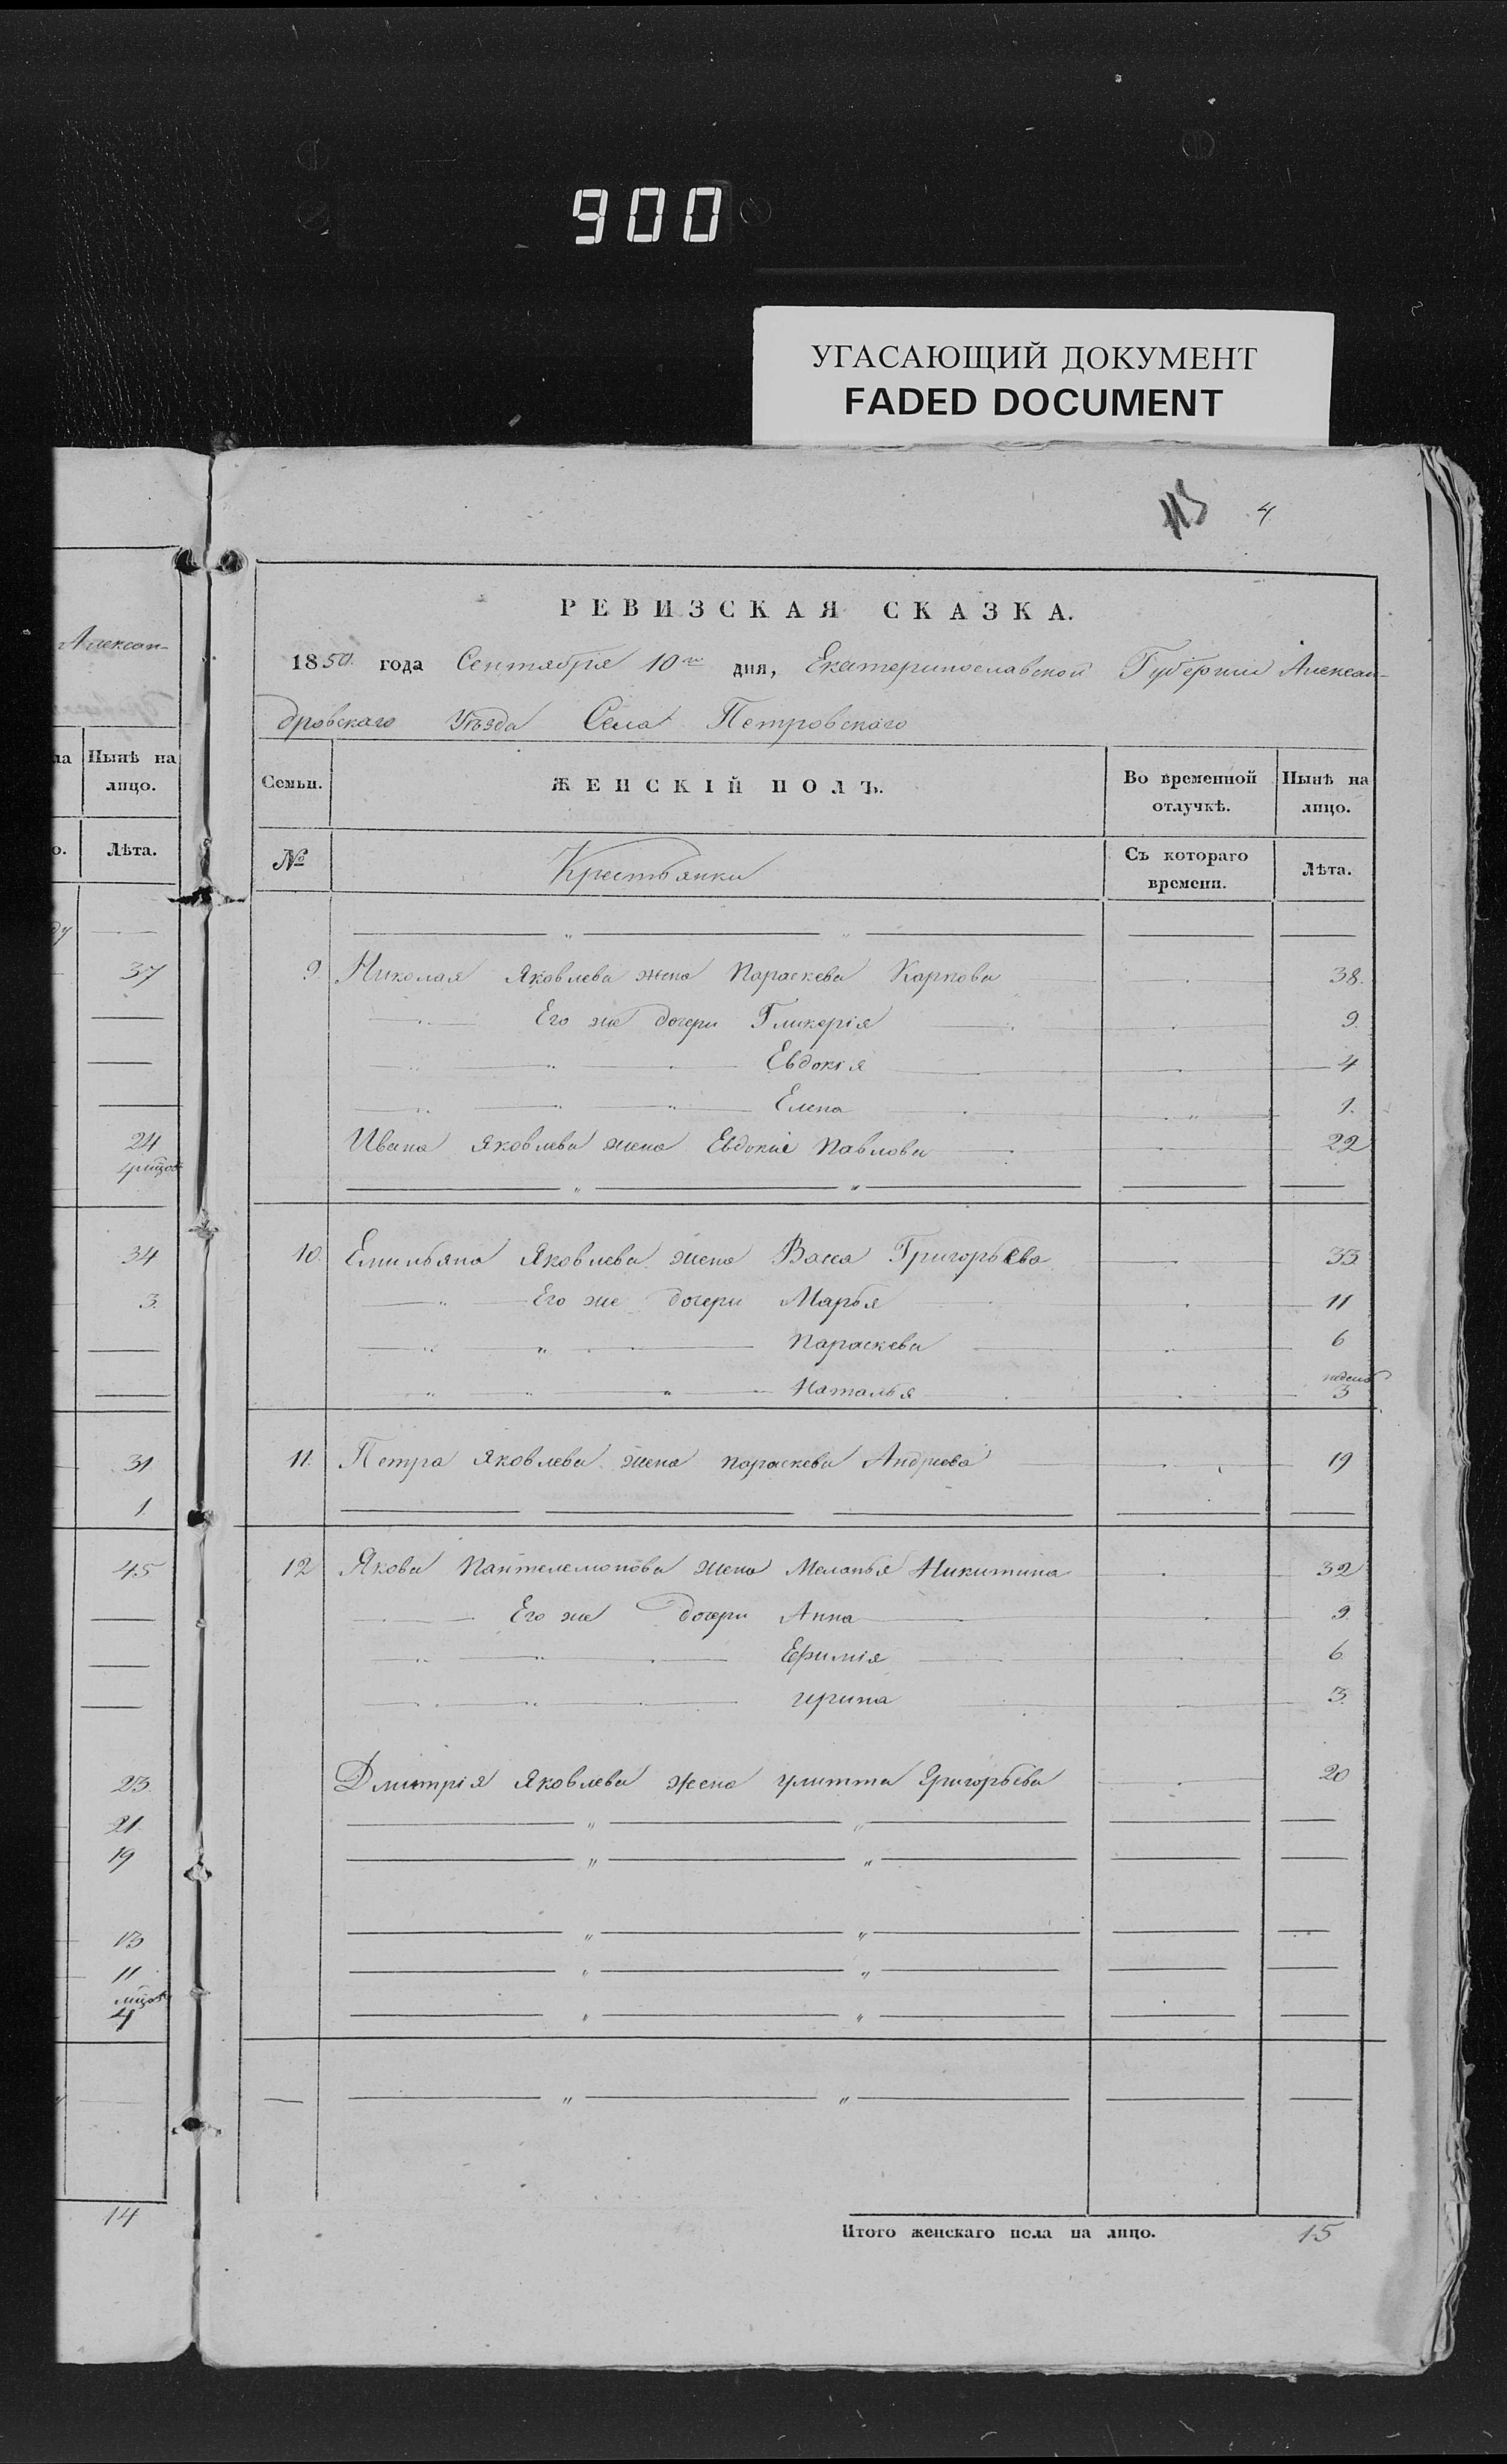 900
УГАСАЮЩИЙ ДОКУМЕНТ
FADED DOCUMENT
4
Алексан-
Нынѣ на
лицо.
Лѣта.
37
24
34
3.
31
1
45
23.
21.
19
13
11
4
14
РЕВИЗСКАЯ СКАЗКА.
1850 года Сентября 10го дня, Екатеринославской Губернии Алексан-
дровскаго Уѣзда Села Петровскаго
Семьи. ЖЕНСКІЙ ПОЛЪ. Во временной отлучкѣ. Нынѣ на лицо.
№ Крестьянки Съ котораго времени. Лѣта.
9. Николая Яковлева жена Параскева Карпова 38.
Его же дочери Гликерія 9.
Евдокія 4
Елена 1.
Ивана Яковлева жена Евдокія Павлова 22
10. Емильяна Яковлева жена Васса Григорьева 33.
Его же дочери Марья 11
Параскева 6
Наталья недель 3
11. Петра Яковлева жена Параскева Андреева 19
12 Якова Пантелемонова жена Меланья Никитина 32
Его же дочери Анна 9.
Ефимія 6.
Ирина 3.
Дмитрія Яковлева жена Улитта Григорьева 20
Итого женскаго пола на лицо. 15